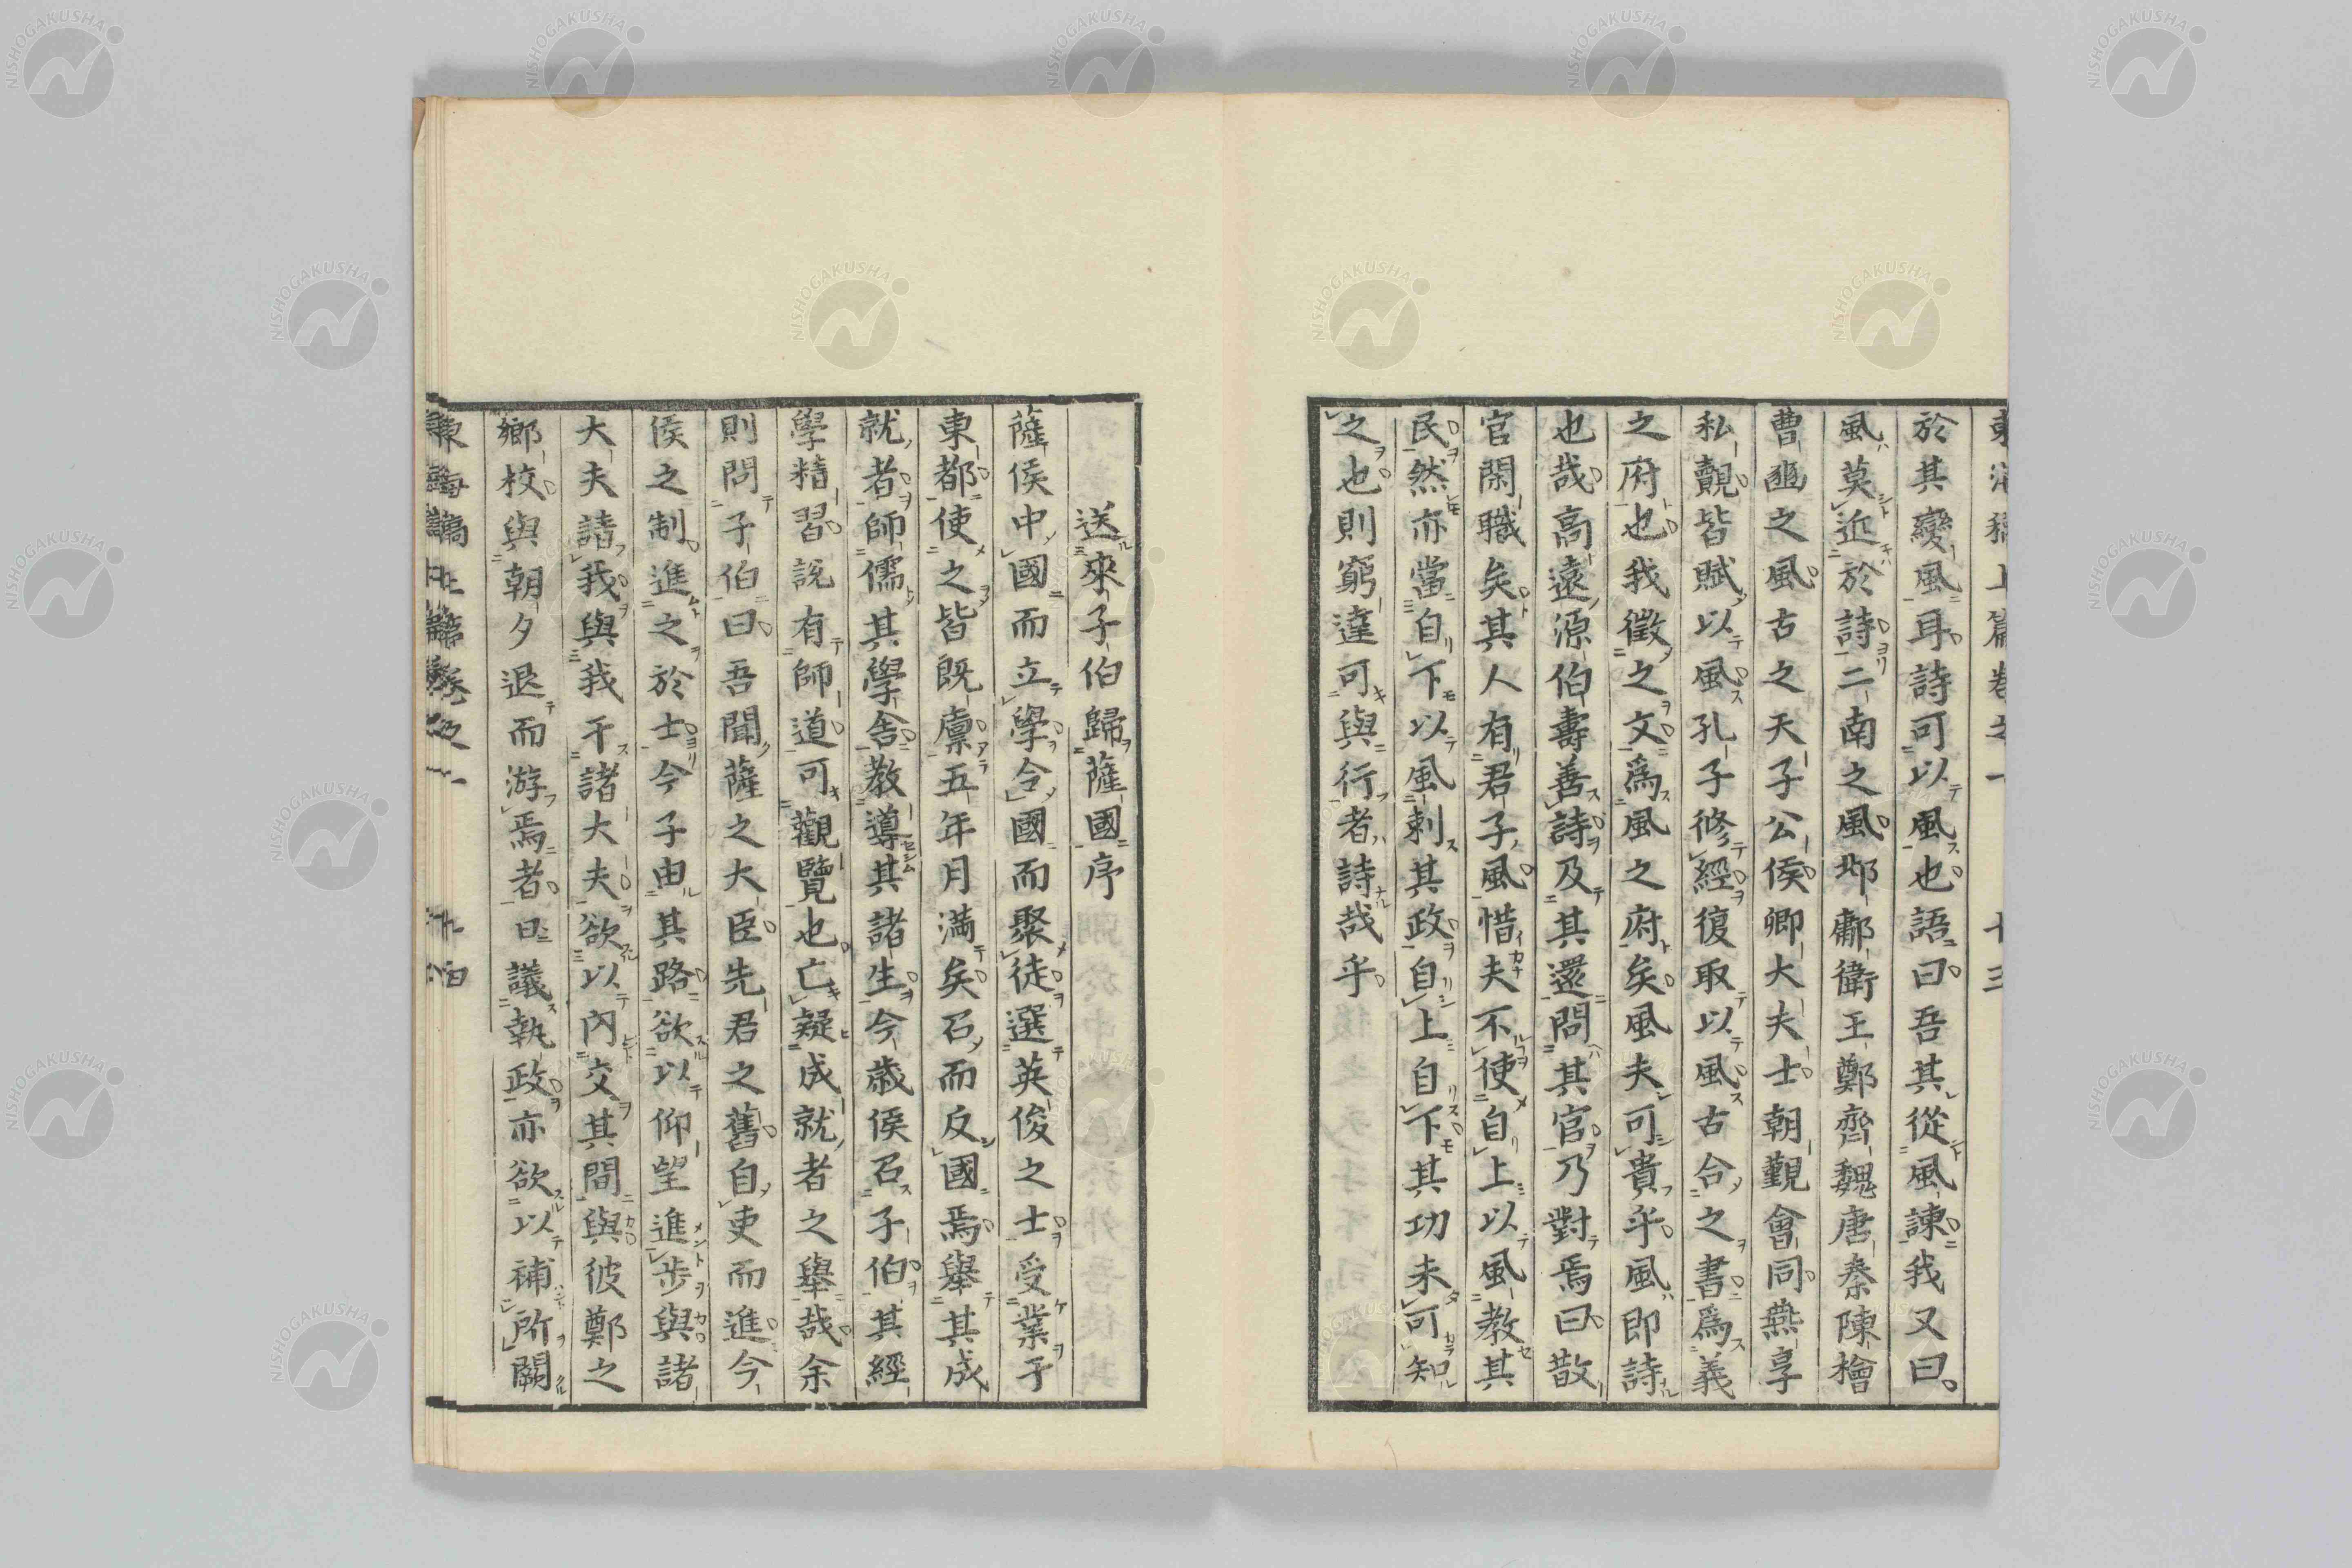 於其變風耳詩可以風也語曰吾其從風諫我又曰
風莫近於詩二南之風邶鄘衛王鄭齊魏唐秦陳檜
曹豳之風古之天子公侯卿大夫士朝覲會同燕享
私覿皆賦以風孔子修經復取以風古合之書爲義
之府也我徵之文爲風之府矣風夫可貴乎風即詩
也哉高遠源伯壽善詩及其還問其官乃對焉曰散
官閑職矣其人有君子風惜夫不使自上以風教其
民然亦當自下以風刺其政自上自下其功未可知
之也則窮達可與行者詩哉乎
送來子伯歸薩國序
薩侯中國而立學令國而聚徒選英俊之士受業于
東都使之皆既廪五年月満矣召而反國焉舉其成
就者師儒其學舎教導其諸生今歳侯召子伯其經
學精習説有師道可觀覽也亡疑成就者之舉哉余
則問子伯曰吾聞薩之大臣先君之舊自吏而進今
侯之制進之於士今子由其路欲以仰望進步與諸
大夫請我與我干諸大夫欲以内交其間與彼鄭之
鄉校與朝夕退而游焉者曰議執政亦欲以補所闕
NISHOGAKUSHA